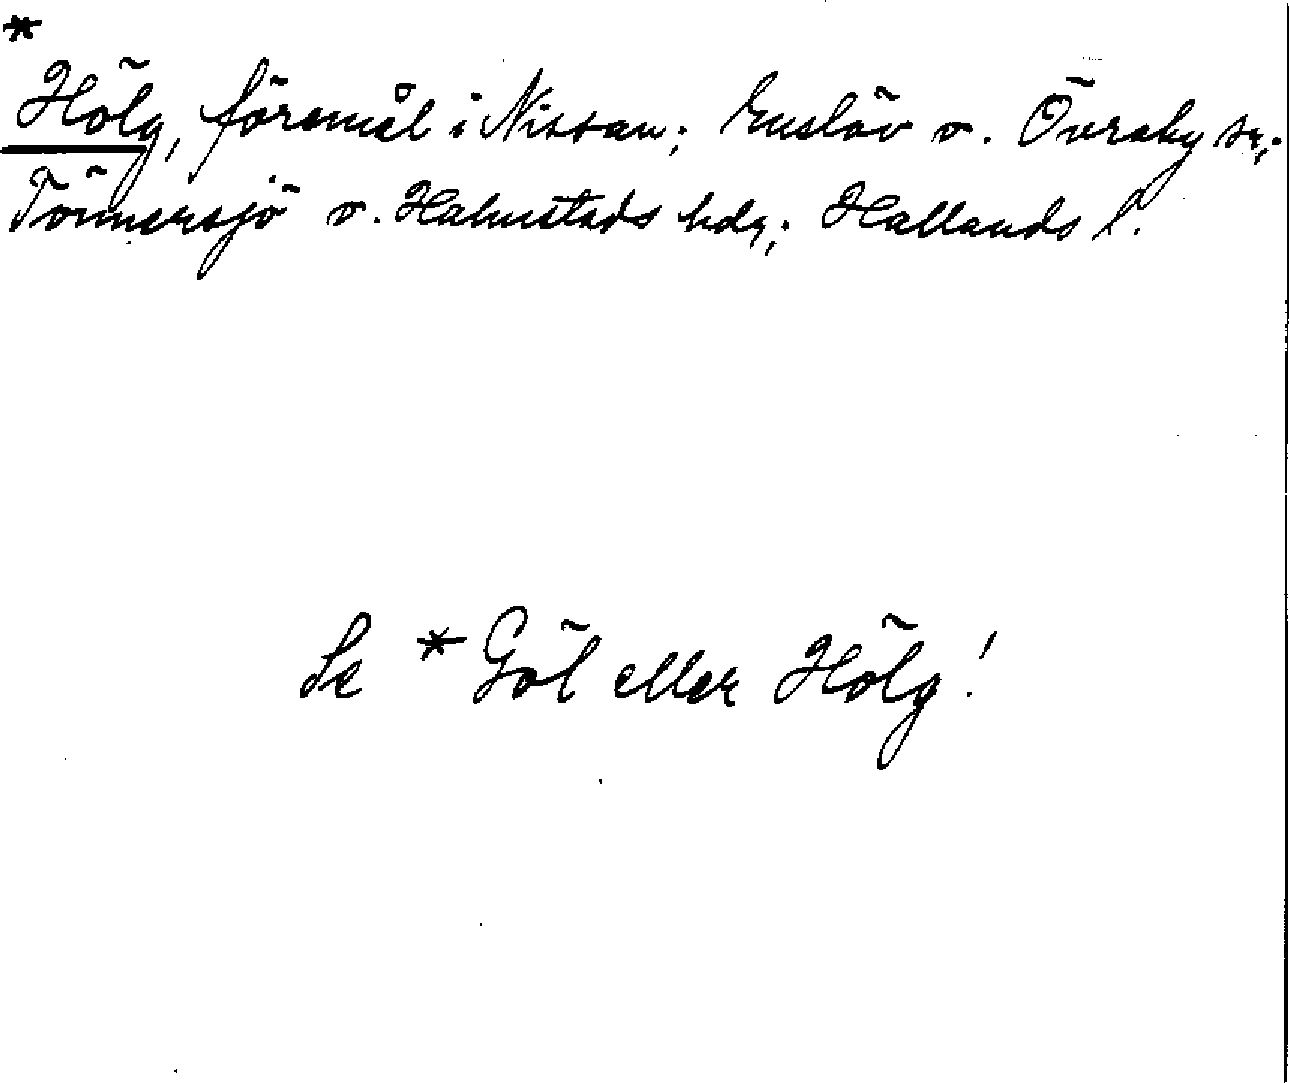 *
Hölg, föremål i Nissan; Enslöv o. Övraby sn,;
Tönnersjö o. Halmstads hdr,; Hallands l.
Se * Göl eller Hölg!